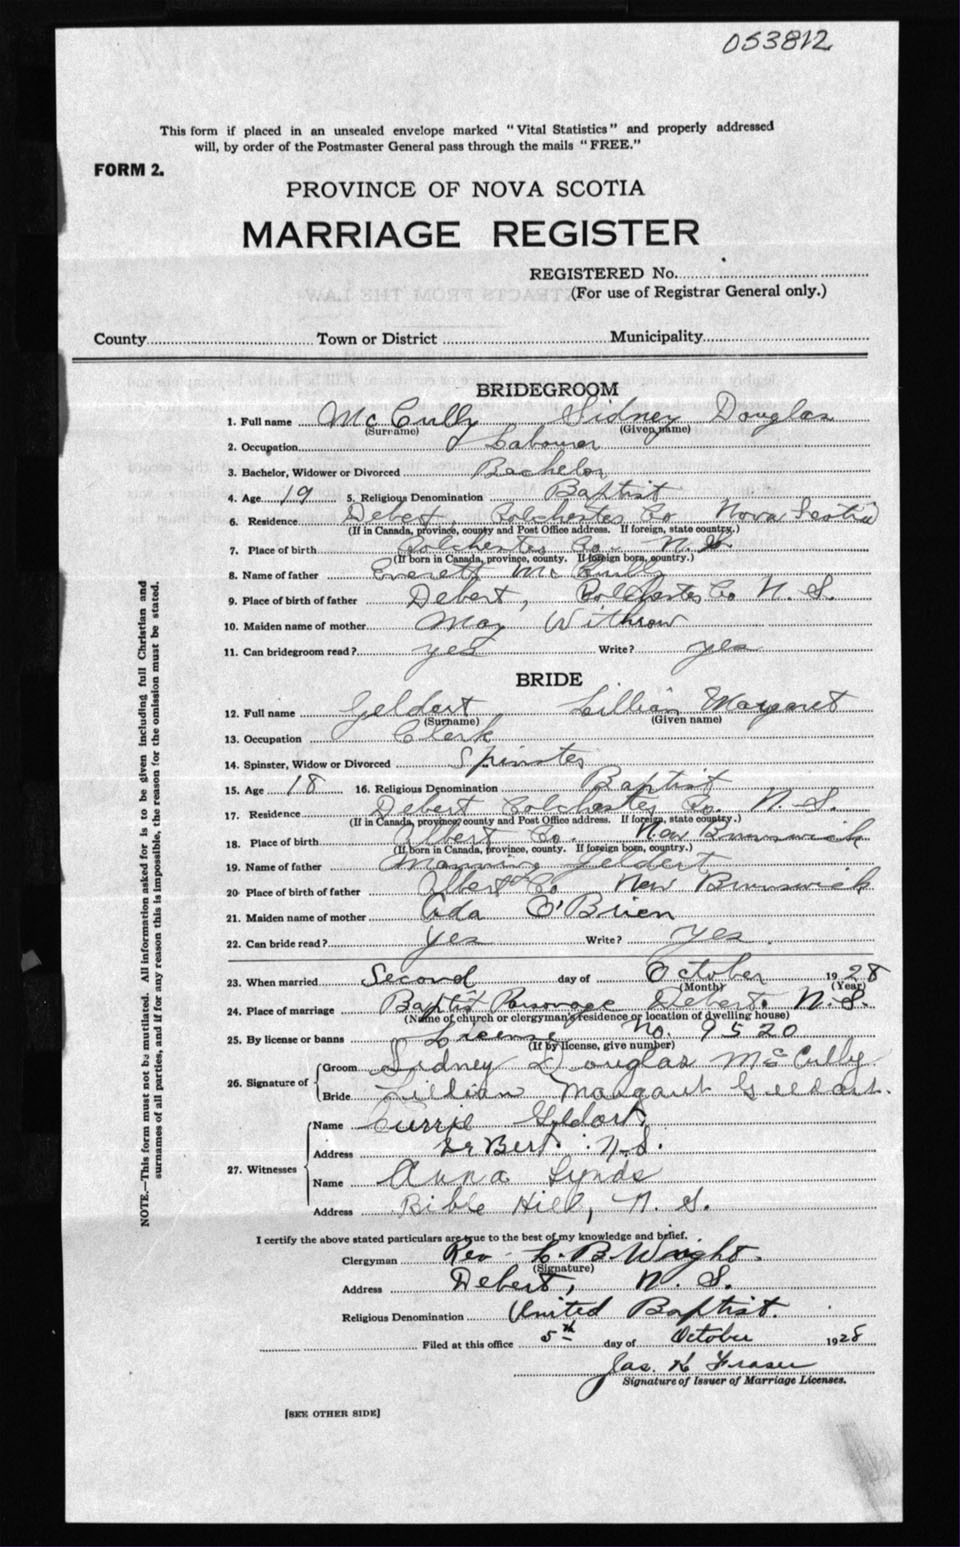 053812
This form if placed in an unsealed envelope marked "Vital Statistics" and properly addressed
will, by order of the Postmaster General pass through the mails "FREE."
FORM 2.
PROVINCE OF NOVA SCOTIA
MARRIAGE REGISTER
REGISTERED No.
(For use of Registrar General only.)
County Town or District Municipality
BRIDEGROOM
1. Full name McCully Sidney Douglas
(Surname) (Given name)
2. Occupation Labourer
3. Bachelor, Widower or Divorced Bachelor
4. Age 19 5. Religious Denomination Baptist
6. Residence Debert, Colchester Co Nova Scotia
(If in Canada, province, county and Post Office address. If foreign, state country.)
7. Place of birth Colchester Co. N.S.
(If born in Canada, province, county. If foreign born, country.)
8. Name of father Everett McCully
9. Place of birth of father Debert, Colchester Co N.S.
10. Maiden name of mother May Withrow
11. Can bridegroom read? yes Write? yes
BRIDE
12. Full name Geldert Lillian Margaret
(Surname) (Given name)
13. Occupation Clerk
14. Spinster, Widow or Divorced Spinster
15. Age 18 16. Religious Denomination Baptist
17. Residence Debert Colchester Co. N.S.
(If in Canada, province, county and Post Office address. If foreign, state country.)
18. Place of birth Albert Co. New Brunswick
(If born in Canada, province, county. If foreign born, country.)
19. Name of father Manning Geldert
20 Place of birth of father Albert Co New Brunswick
21. Maiden name of mother Ada O'Brien
22. Can bride read? yes Write? yes.
23. When married Second day of October 1928
(Month) (Year)
24. Place of marriage Baptist Parsonage Debert. N.S.
(Name of church or clergyman's residence or location of dwelling house)
25. By license or banns License No. 9520
(If by license, give number)
26. Signature of Groom Sidney Douglas McCully
Bride Lillian Margaret
27. Witnesses
Name Currie Geldort
Address DeBert. N.S.
Name Anna Lynds
Address Bible Hill, N.S.
I certify the above stated particulars are true to the best of my knowledge and belief.
Clergyman Rev. B. Wright.
(Signature)
Address Debert, N.S.
Religious Denomination United Baptist.
Filed at this office 5th day of October 1928
Jas. K Fraser
Signature of Issuer of Marriage Licenses.
[SEE OTHER SIDE]
NOTE.—This form must not be mutilated. All information asked for is to be given including full Christian and
surnames of all parties, and if for any reason this is impossible, the reason for the omission must be stated.